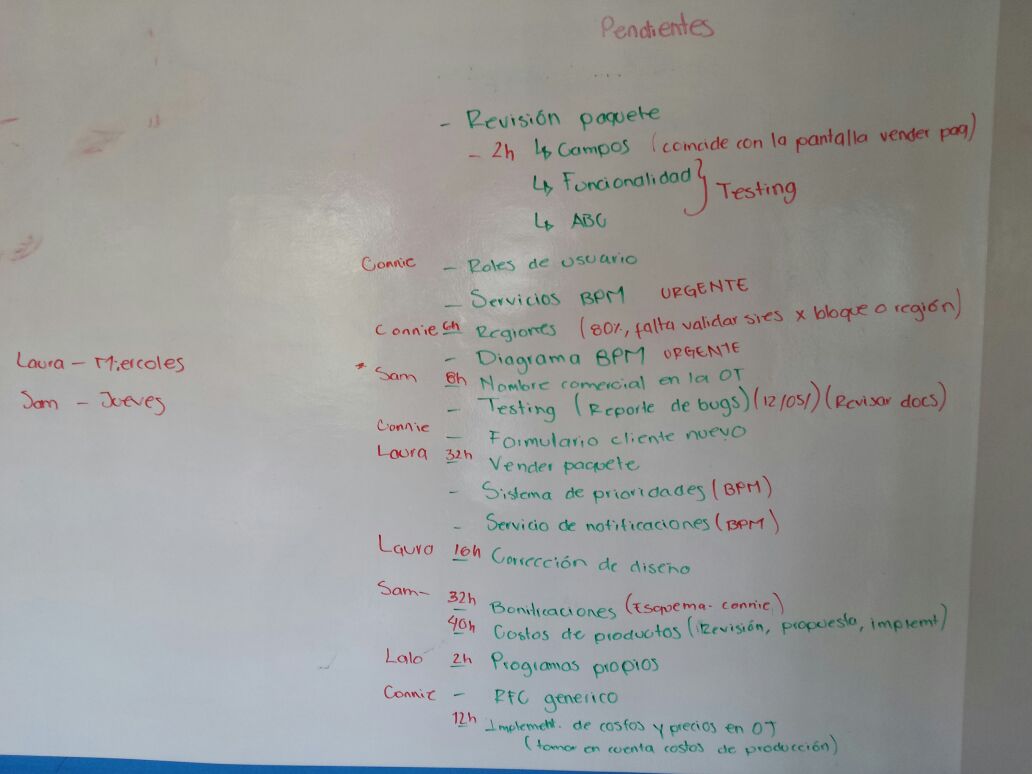 Pendientes
- Revisión paquete
- 2h ↳ Campos (coincide con la pantalla vender paq)
↳ Funcionalidad } Testing
↳ ABC
Connie - Roles de usuario
- Servicios BPM URGENTE
Connie 6h Regiones (80%, falta validar si es x bloque o región)
- Diagrama BPM URGENTE
* Sam 8h Nombre comercial en la OT
- Testing (Reporte de bugs) (12/05/) (Revisar docs)
Connie - Formulario cliente nuevo
Laura 32h Vender paquete
- Sistema de prioridades (BPM)
- Servicio de notificaciones (BPM)
Laura 16h Corrección de diseño
Sam - 32h Bonificaciones (Esquema - connie)
40h Costos de productos (Revisión, propuesta, implemt)
Lalo 2h Programas propios
Connie - RFC generico
12h Implement. de costos y precios en OT
(tomar en cuenta costos de producción)
Laura - Miercoles
Sam - Jueves